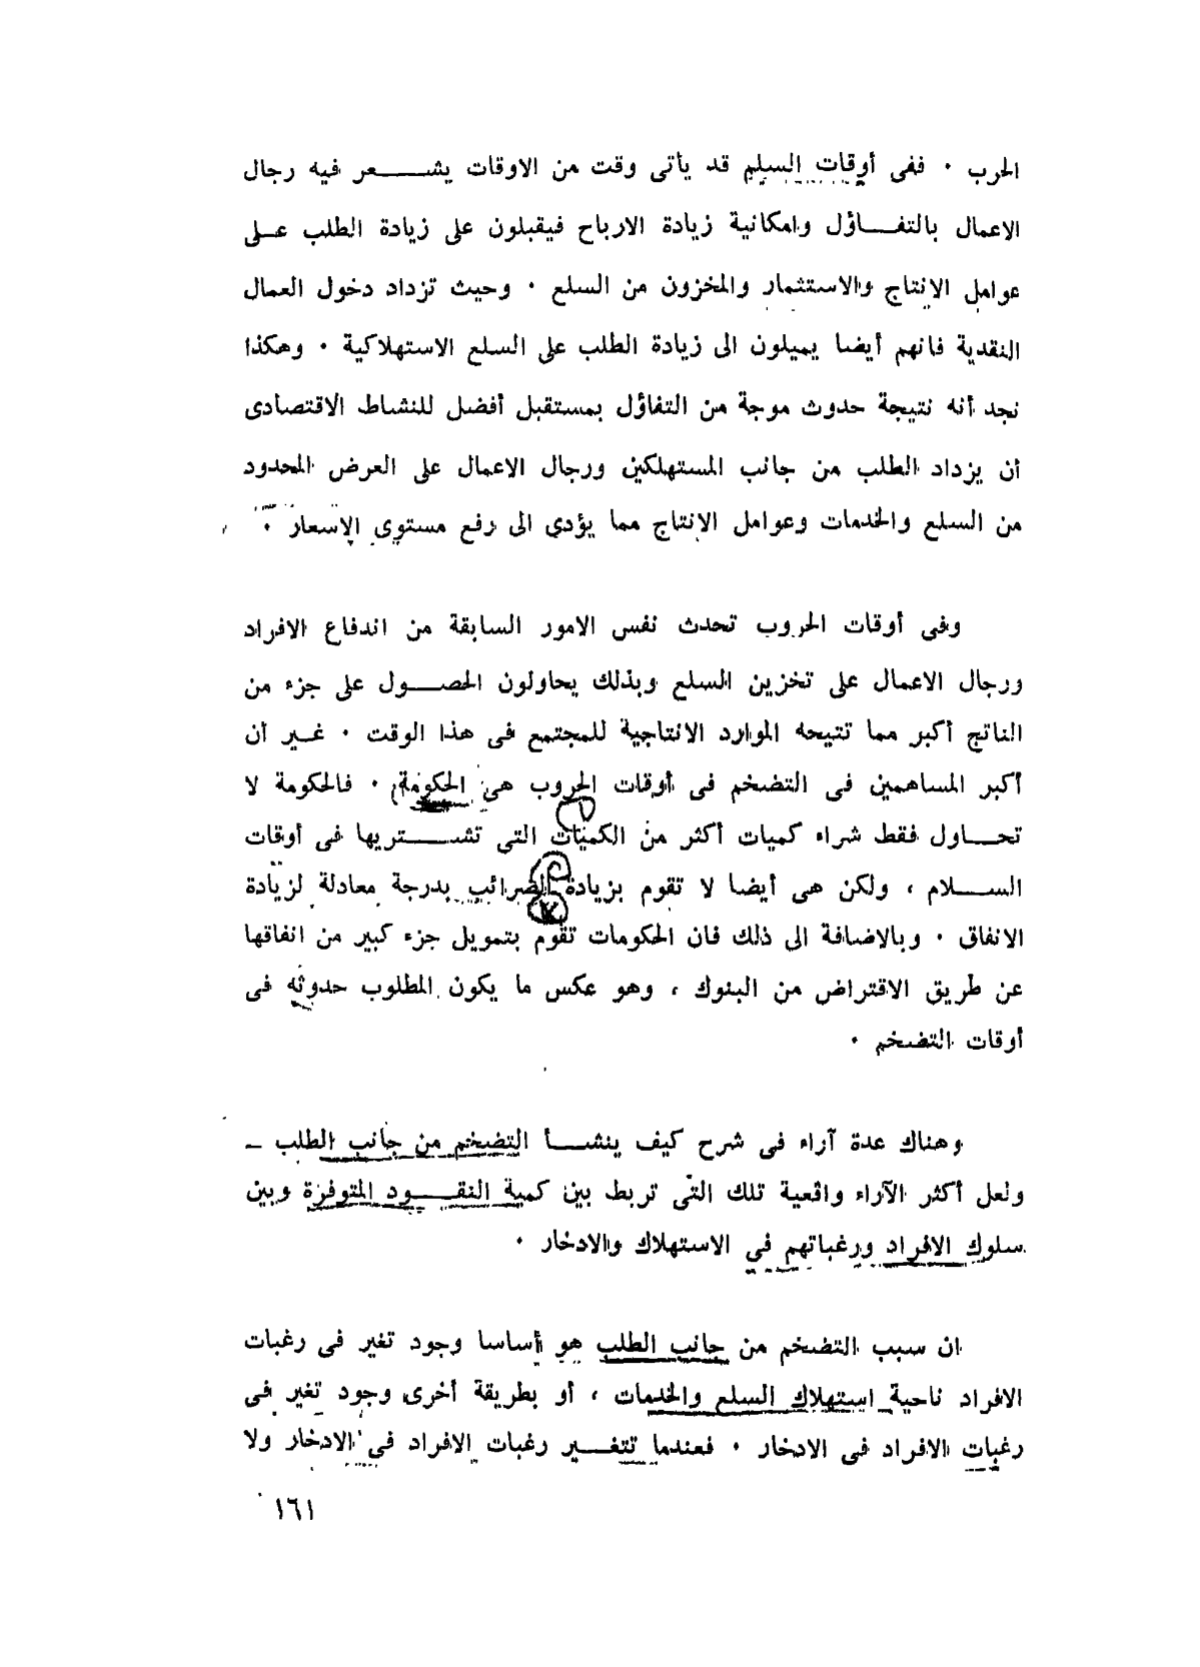 الحرب . ففى أوقات السلم قد يأتى وقت من الاوقات يشعر فيه رجال
الاعمال بالتفاؤل وامكانية زيادة الارباح فيقبلون على زيادة الطلب على
عوامل الانتاج والاستثمار والمخزون من السلع . وحيث تزداد دخول العمال
النقدية فانهم أيضا يميلون الى زيادة الطلب على السلع الاستهلاكية . وهكذا
نجد أنه نتيجة حدوث موجة من التفاؤل بمستقبل أفضل للنشاط الاقتصادى
أن يزداد الطلب من جانب المستهلكين ورجال الاعمال على العرض المحدود
من السلع والخدمات وعوامل الانتاج مما يؤدى الى رفع مستوى الاسعار .
وفى أوقات الحروب تحدث نفس الامور السابقة من اندفاع الافراد
ورجال الاعمال على تخزين السلع وبذلك يحاولون الحصول على جزء من
الناتج أكبر مما تتيحه الموارد الانتاجية للمجتمع فى هذا الوقت . غير أن
أكبر المساهمين فى التضخم فى أوقات الحروب هى الحكومة . فالحكومة لا
تحاول فقط شراء كميات أكثر من الكميات التى تشتريها فى أوقات
السلام ، ولكن هى أيضا لا تقوم بزيادة الضرائب بدرجة معادلة لزيادة
الانفاق . وبالاضافة الى ذلك فان الحكومات تقوم بتمويل جزء كبير من انفاقها
عن طريق الاقتراض من البنوك ، وهو عكس ما يكون المطلوب حدوثه فى
أوقات التضخم .
وهناك عدة آراء فى شرح كيف ينشأ التضخم من جانب الطلب ـ
ولعل أكثر الآراء واقعية تلك التى تربط بين كمية النقود المتوفرة وبين
سلوك الافراد ورغباتهم فى الاستهلاك والادخار .
ان سبب التضخم من جانب الطلب هو أساسا وجود تغير فى رغبات
الافراد ناحية استهلاك السلع والخدمات ، أو بطريقة أخرى وجود تغير فى
رغبات الافراد فى الادخار . فعندما تتغير رغبات الافراد فى الادخار ولا
١٦١